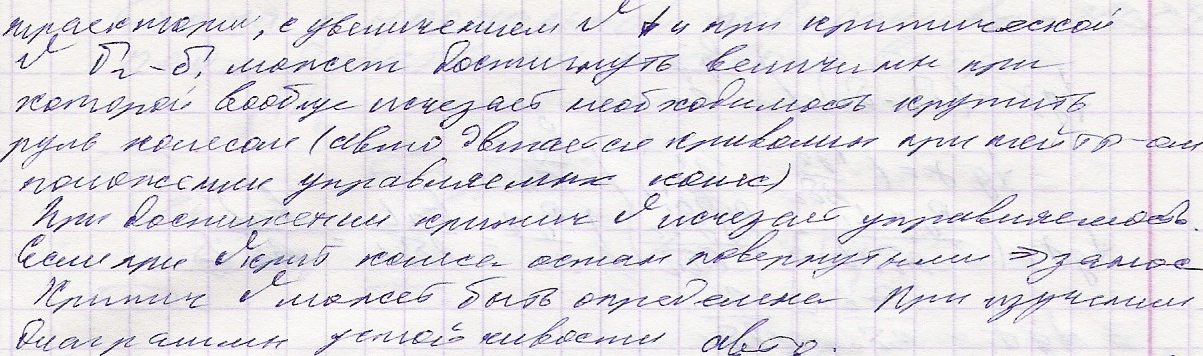 траектории, с увеличением V и при критической
V δ2-δ1 может достигнуть величины при
которой вообще исчезает необходимость крутить
руль колесом (авто двигается криволин при нейтр-ом
положении управляемых колес)
При достижении критич V исчезает управляемость.
Если при Vкрит колеса остан повернутыми => занос
Критич V может быть определена при изучении
диаграммы устойчивости авто.